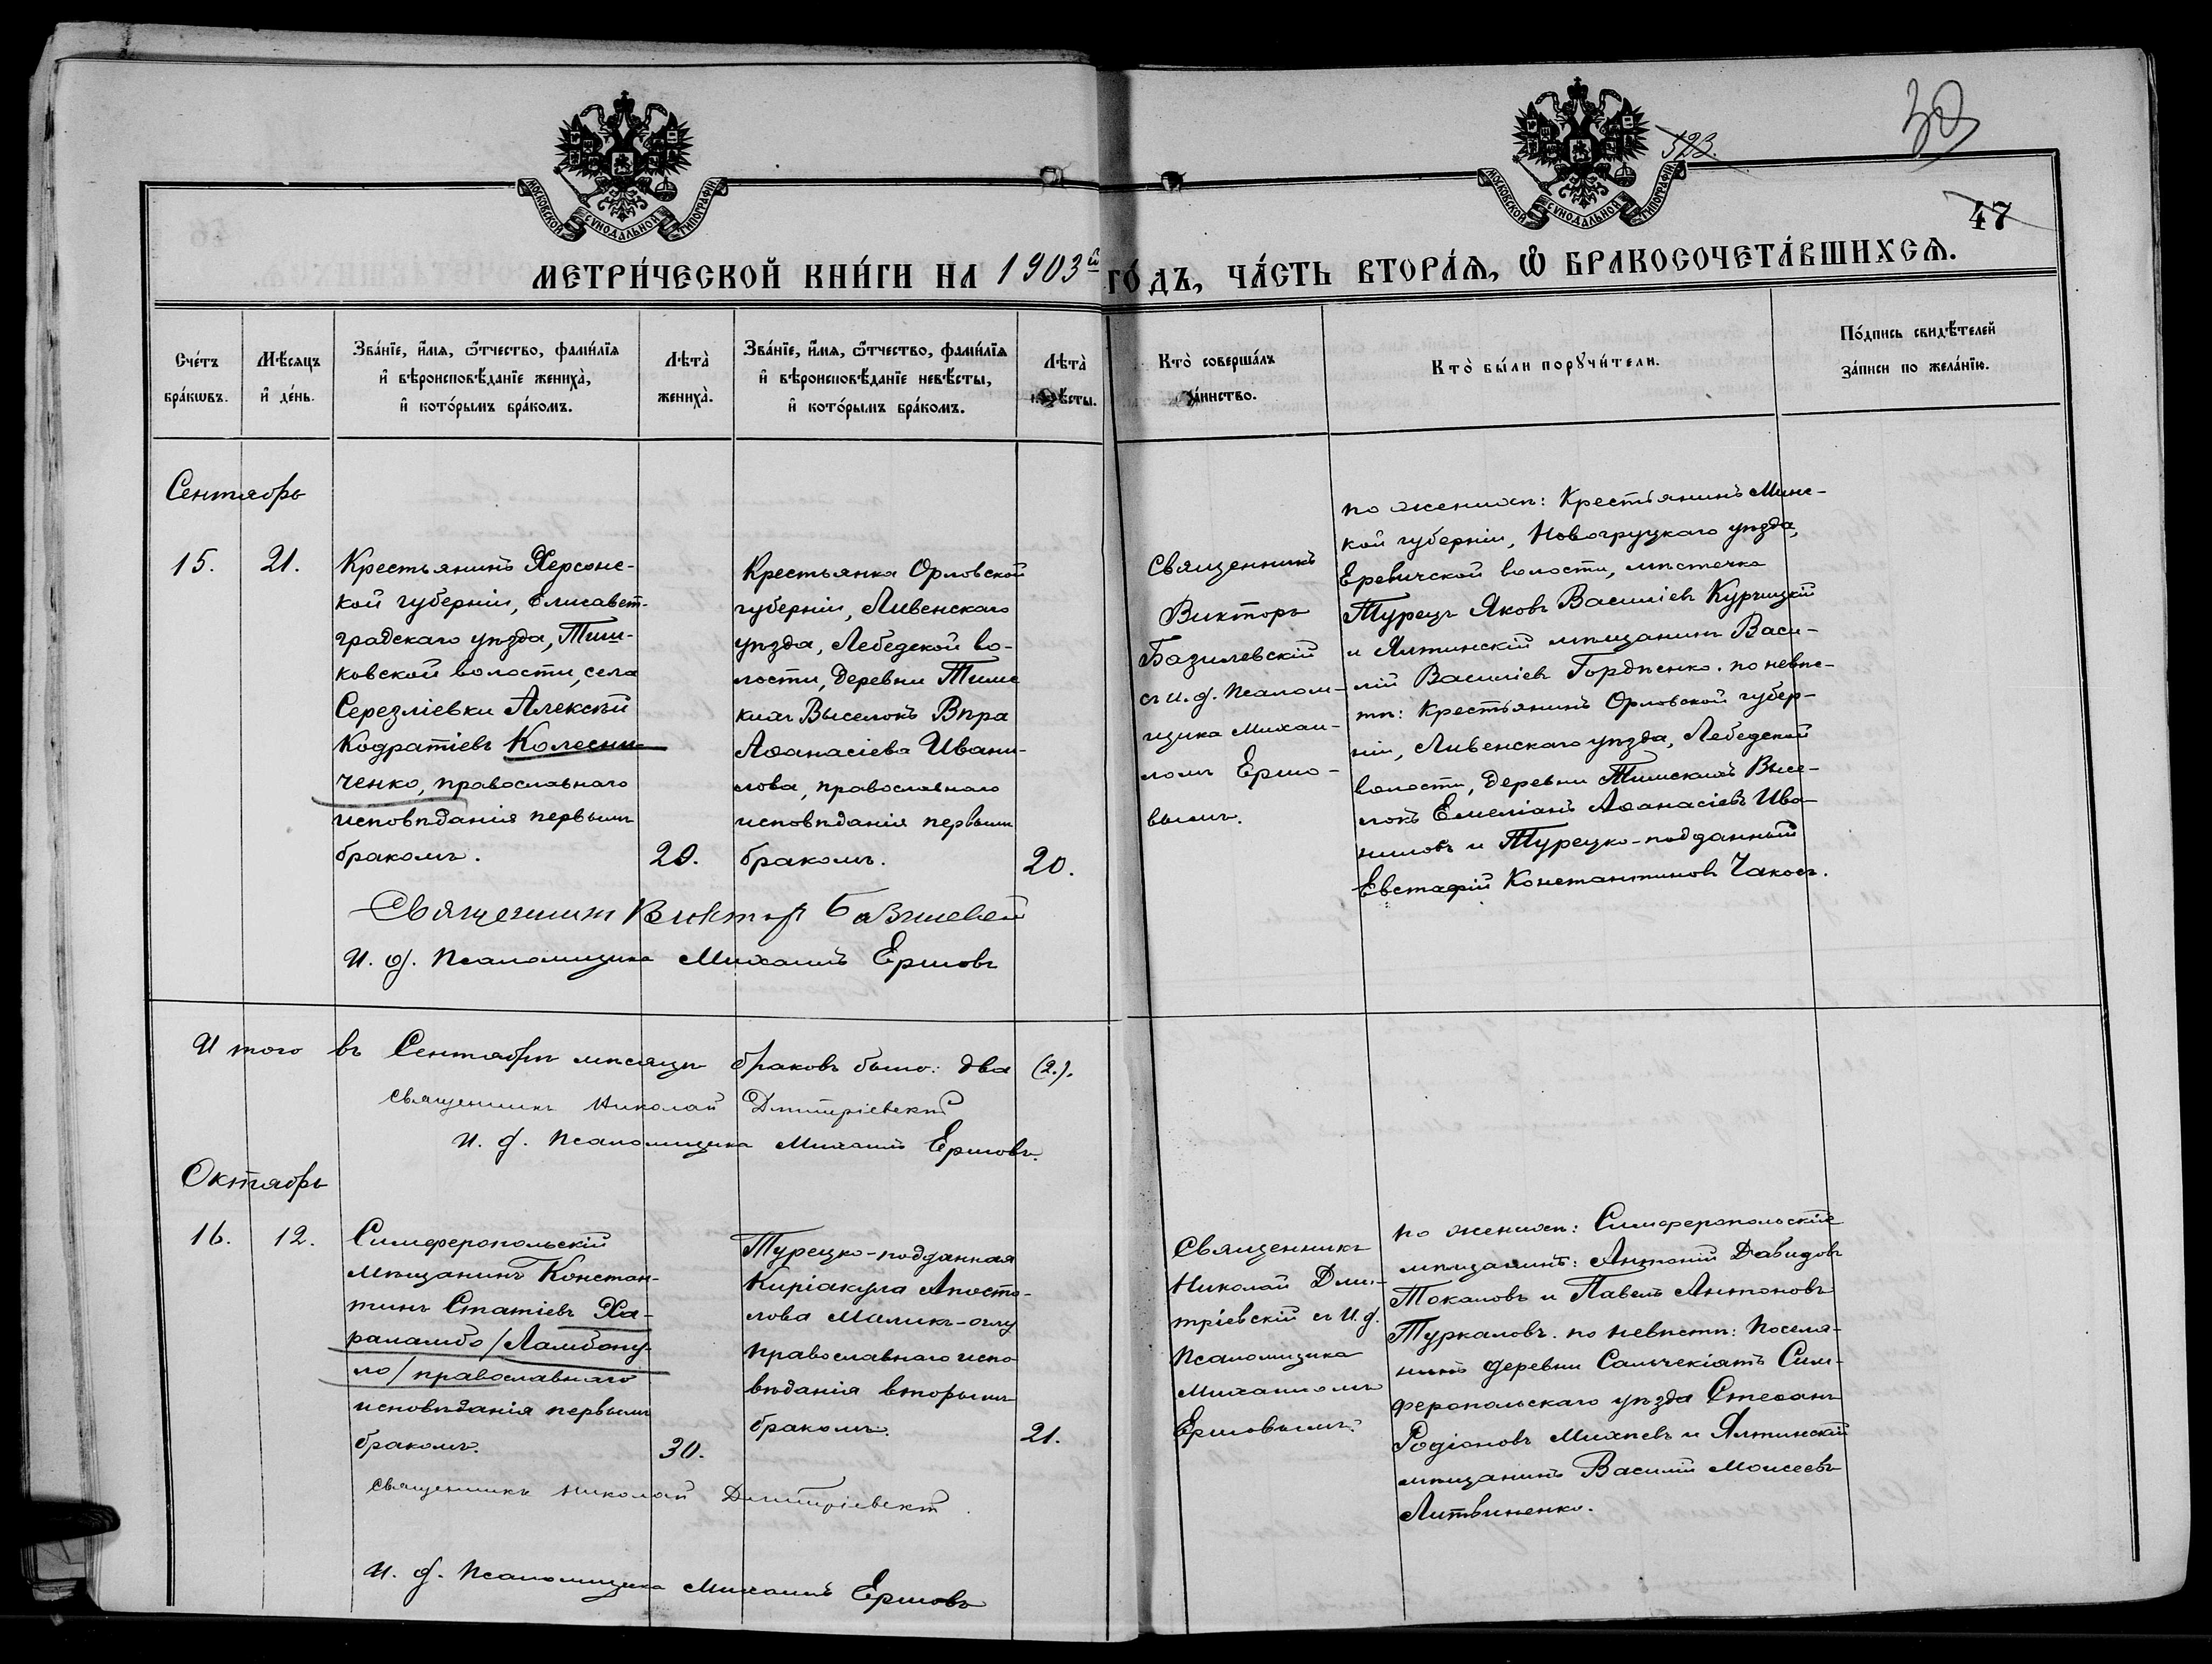 30
523.
47
МОСКОВСКОЙ СѴНОДАЛЬНОЙ ТИПОГРАФІИ
МОСКОВСКОЙ СѴНОДАЛЬНОЙ ТИПОГРАФІИ
МЕТРИ́ЧЕСКОЙ КНИ́ГИ НА 1903й ГО́ДЪ, ЧА́СТЬ ВТОРА́Ѧ, Ѡ҆ БРАКОСОЧЕТА́ВШИХСѦ.
Сче́тъ
бра́кѡвъ.
Мѣ́сяцъ
и҆ де́нь.
Зва́нїе, и҆́мя, ѻ҆́тчество, фамѝлїя
и҆ вѣроисповѣ́данїе жениха̀,
и҆ кото́рымъ бра́комъ.
Лѣ́та
жениха̀.
Зва́нїе, и҆́мя, ѻ҆́тчество, фамѝлїя
и҆ вѣроисповѣ́данїе невѣ́сты,
и҆ кото́рымъ бра́комъ.
Лѣ́та
невѣ́сты.
Кто̀ соверша́лъ
та́инство.
Кто̀ бы́ли порꙋчи́тели.
По́дпись свидѣ́телей
за́писи по жела́нїю.
Сентябрь
15.
21.
Крестьянинъ Херсонс-
кой губерніи, Елисавет-
градскаго уѣзда, Тиш-
ковской волости, села
Серезліевки Алексѣй
Кодратіевъ Колесни-
ченко, православнаго
исповѣданія первымъ
бракомъ.
20.
Крестьянка Орловской
губерніи, Ливенскаго
уѣзда, Лебедской во-
лости, деревни Тимс
кихъ Выселокъ Вѣра
Аѳанасіева Ивани-
лова, православнаго
исповѣданія первымъ
бракомъ.
20.
Священникъ
Викторъ
Базилевскій
съ И. д. Псалом-
щика Михаи-
ломъ Ершо-
вымъ.
по женихѣ: Крестьянинъ Минс-
кой губерніи, Новогруцкаго уѣзда,
Еремичской волости, мѣстечка
Турецъ Яковъ Василіевъ Курчицкій
и Ялтинскій мѣщанинъ Васи-
лій Василіевъ Гордѣенко. по невѣс-
тѣ: Крестьянинъ Орловской губер-
ніи, Ливенскаго уѣзда, Лебедской
волости, деревни Тимскихъ Высе-
локъ Емеліанъ Аѳанасіевъ Ива-
ниловъ и Турецко-подданный
Евстафій Константиновъ Чакосъ.
Священникъ Викторъ Базилевскій
И. д. Псаломщика Михаилъ Ершовъ
Итого въ Сентябрѣ мѣсяцѣ браковъ было: два (2.).
Священникъ Николай Дмитріевскій
И. д. Псаломщика Михаилъ Ершовъ.
Октябрь
16.
12.
Симферопольскій
мѣщанинъ Констан-
тинъ Статіевъ Ха-
раламбо /Ламбопу-
ло/ православнаго
исповѣданія первымъ
бракомъ.
30.
Турецко-подданная
Киріакула Апосто-
лова Меликъ-оглу
православнаго испо-
вѣданія вторымъ
бракомъ.
21.
Священникъ
Николай Дми-
тріевскій съ И. д.
Псаломщика
Михаиломъ
Ершовымъ.
по женихѣ: Симферопольскіе
мѣщанинъ: Антоній Давидовъ
Токаловъ и Павелъ Антоновъ
Туркаловъ. по невѣстѣ: Поселя-
нинъ деревни Салчекіятъ Сим-
феропольскаго уѣзда Стефанъ
Родіоновъ Михѣевъ и Ялтинскій
мѣщанинъ Василій Моисеевъ
Литвиненко.
Священникъ Николай Дмитріевскій.
И. д. Псаломщика Михаилъ Ершовъ